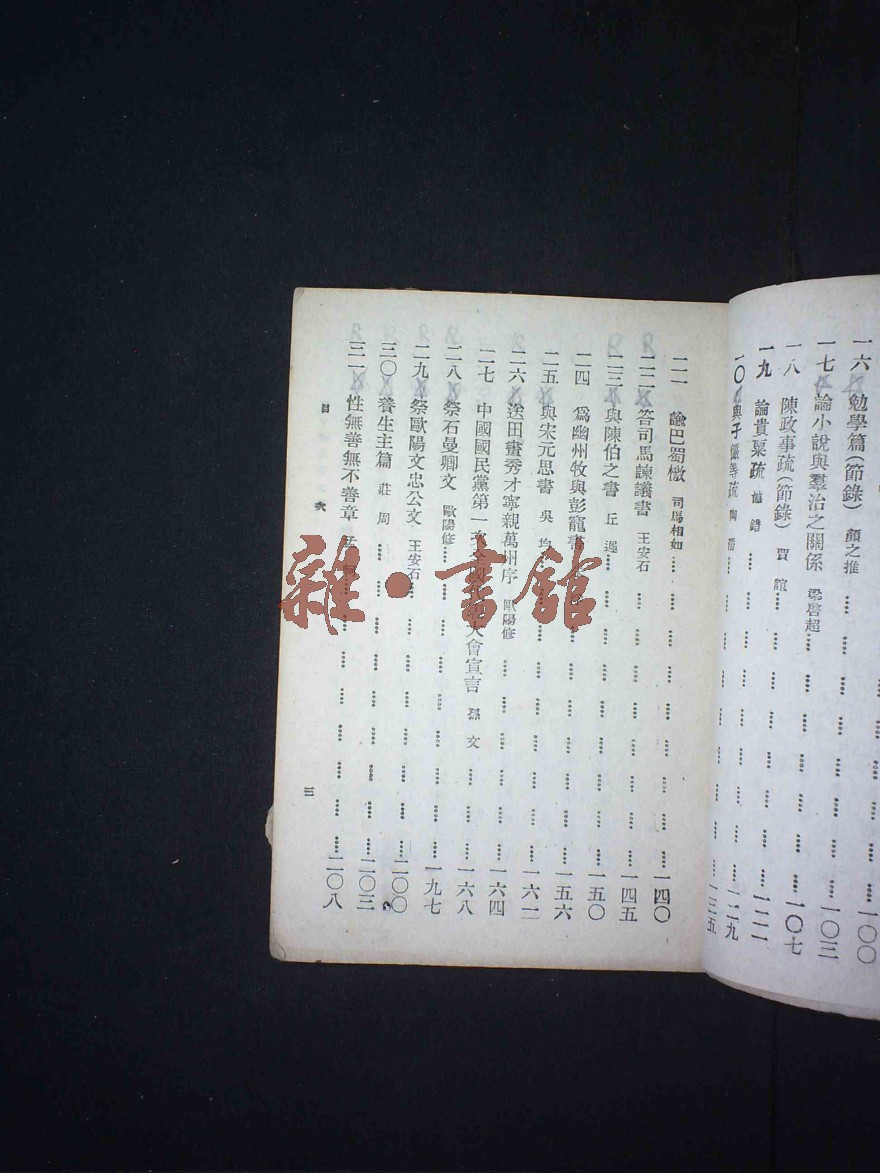 一〇〇
一六 勉學篇(節錄) 顏之推 一〇三
一七 論小說與羣治之關係 梁啓超 一〇七
一八 陳政事疏(節錄) 賈誼 一二一
一九 論貴粟疏 鼂錯 一二九
二〇 與子儼等疏 陶潛 一三五
二一 諭巴蜀檄 司馬相如 一四〇
二二 答司馬諫議書 王安石 一四五
二三 與陳伯之書 丘遲 一五〇
二四 爲幽州牧與彭寵書 一五六
二五 與宋元思書 吳均 一六二
二六 送田畫秀才寧親萬州序 歐陽修 一六四
二七 中國國民黨第一次全國代表大會宣言 孫文 一六八
二八 祭石曼卿文 歐陽修 一九七
二九 祭歐陽文忠公文 王安石 二〇〇
三〇 養生主篇 莊周 二〇三
三一 性無善無不善章 孟軻 二〇八
目次 三
雜·書館